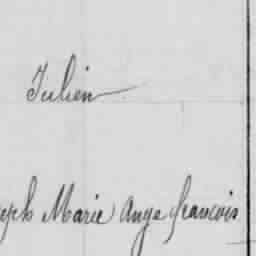 Julien
seph Marie Ange francois